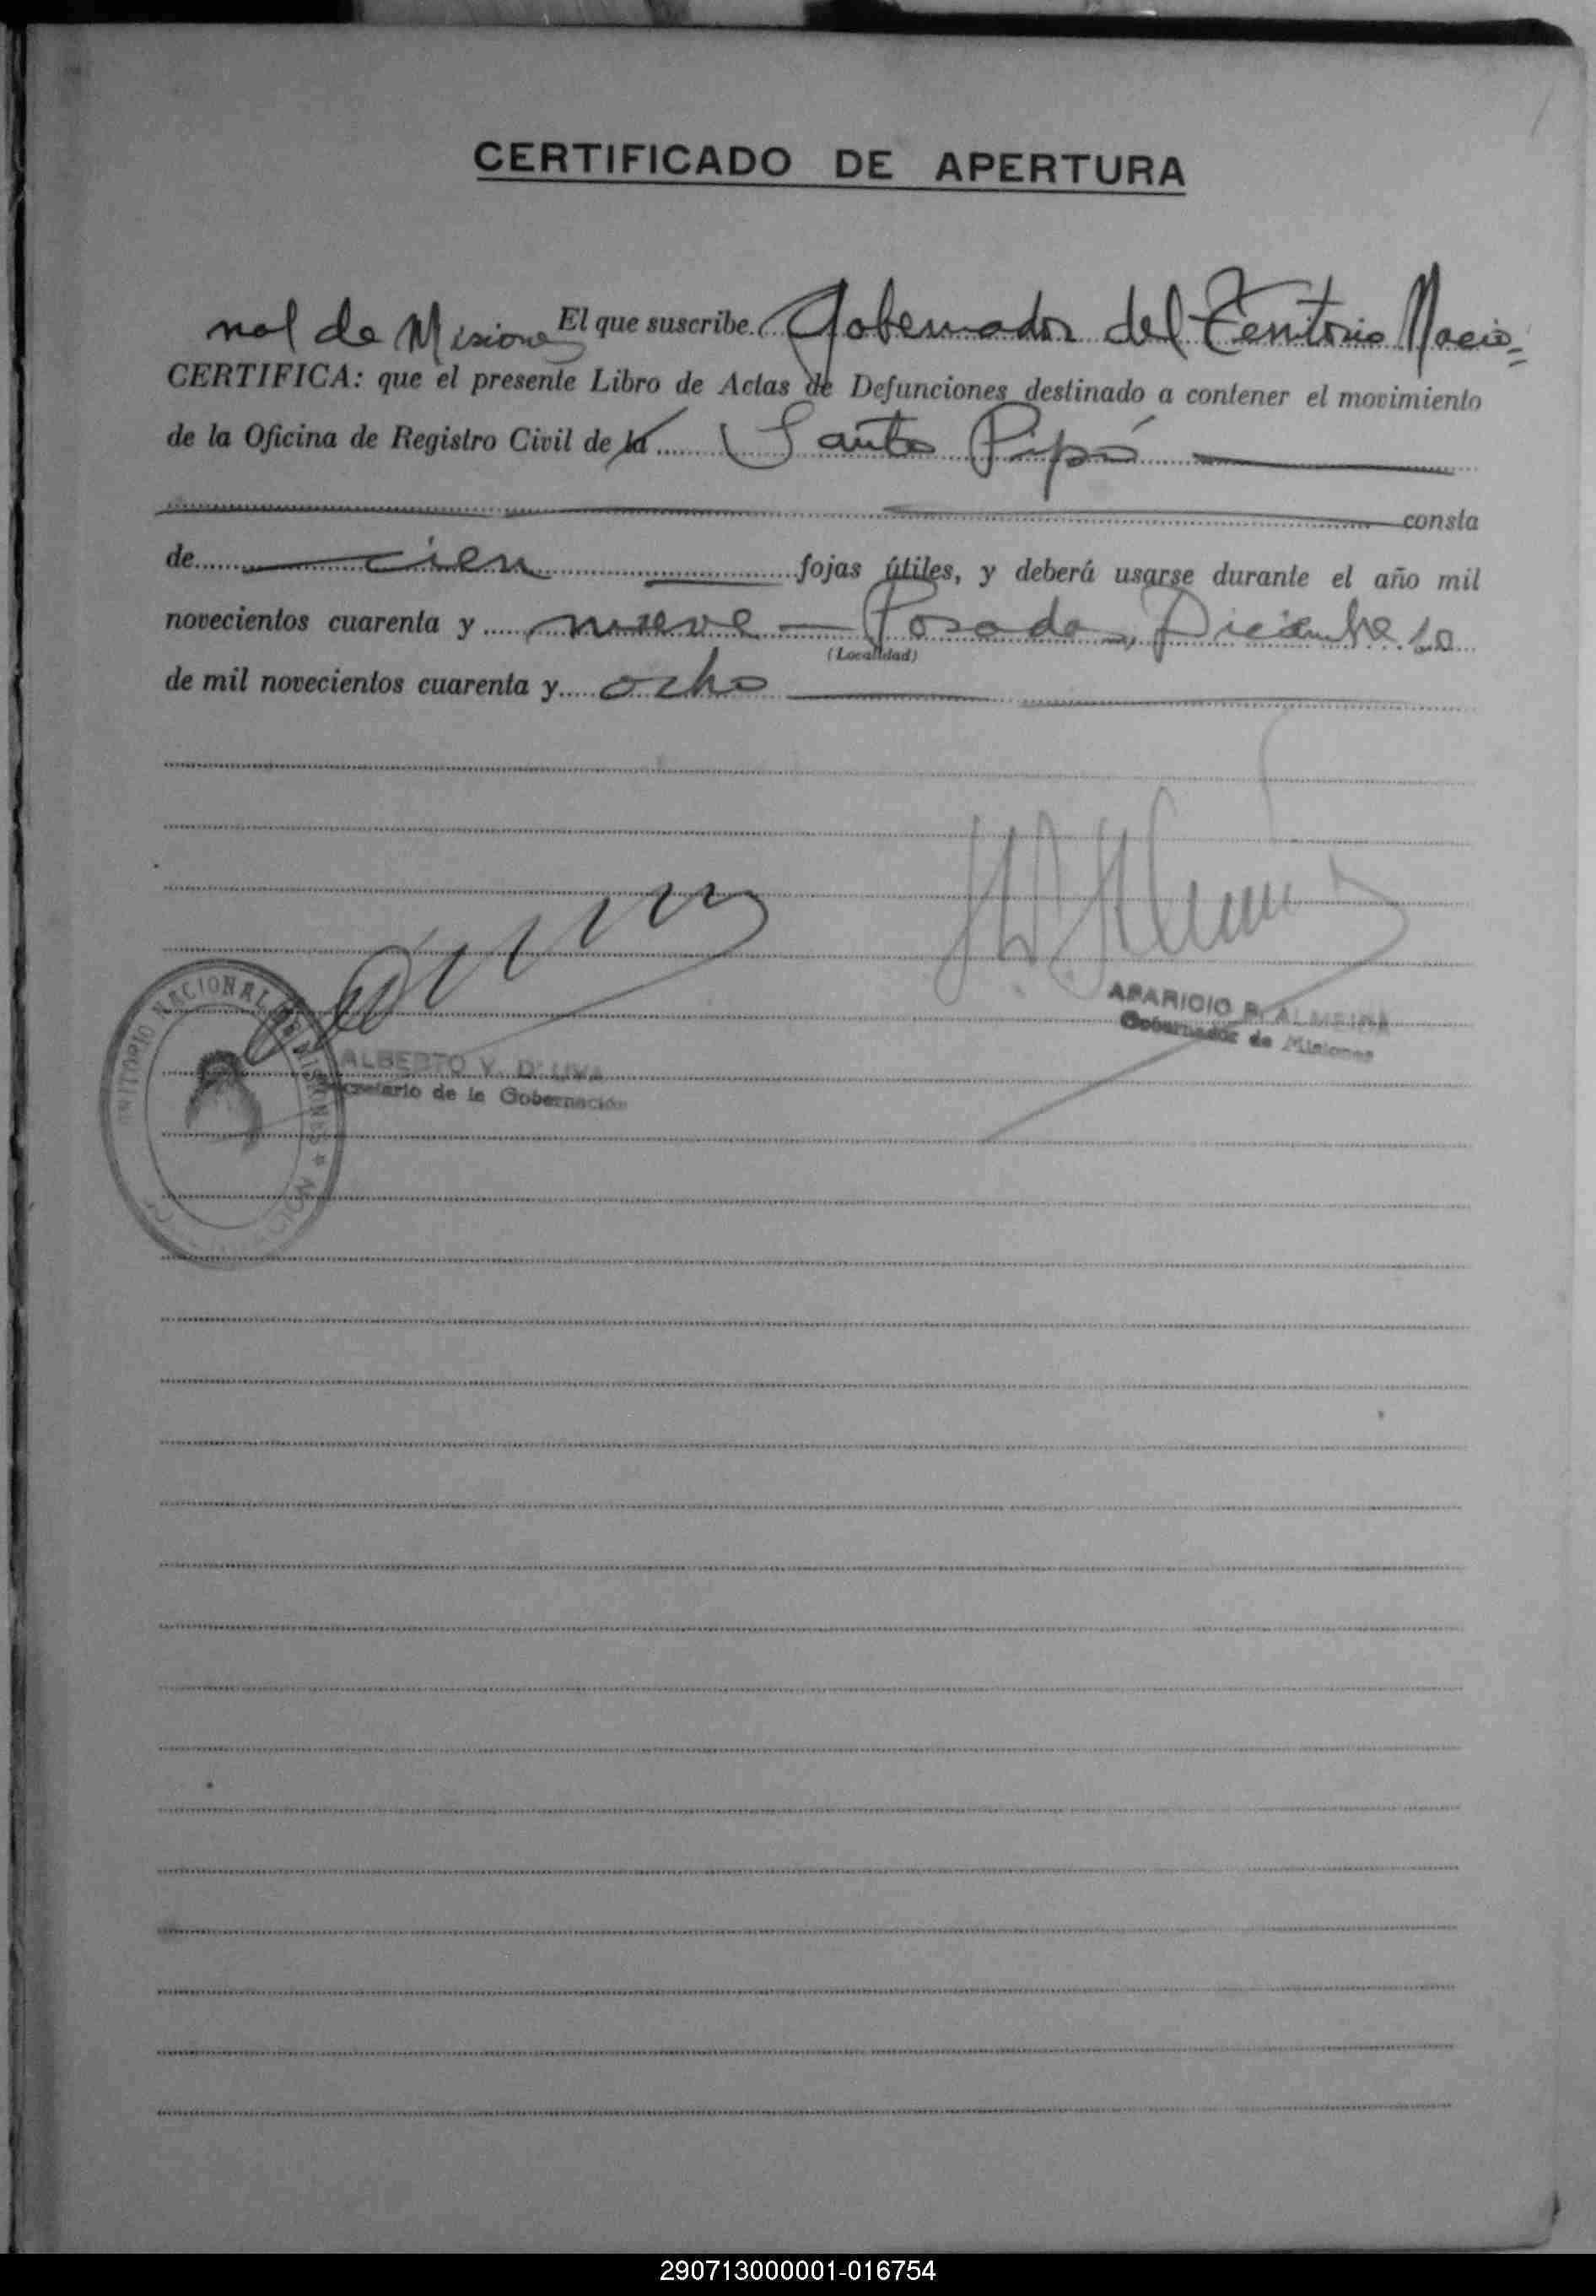 CERTIFICADO DE APERTURA
El que suscribe Gobernador del Territorio Nacio=
nal de Misiones
CERTIFICA: que el presente Libro de Actas de Defunciones destinado a contener el movimiento
de la Oficina de Registro Civil de la Santo Pipó
consta
de cien fojas útiles, y deberá usarse durante el año mil
novecientos cuarenta y nueve — Posadas, Diciembre 10
(Localidad)
de mil novecientos cuarenta y ocho
APARICIO ALMEIDA
Gobernador de Misiones
ALBERTO V. D'
Secretario de la Gobernación
TERRITORIO NACIONAL DE MISIONES *
290713000001-016754